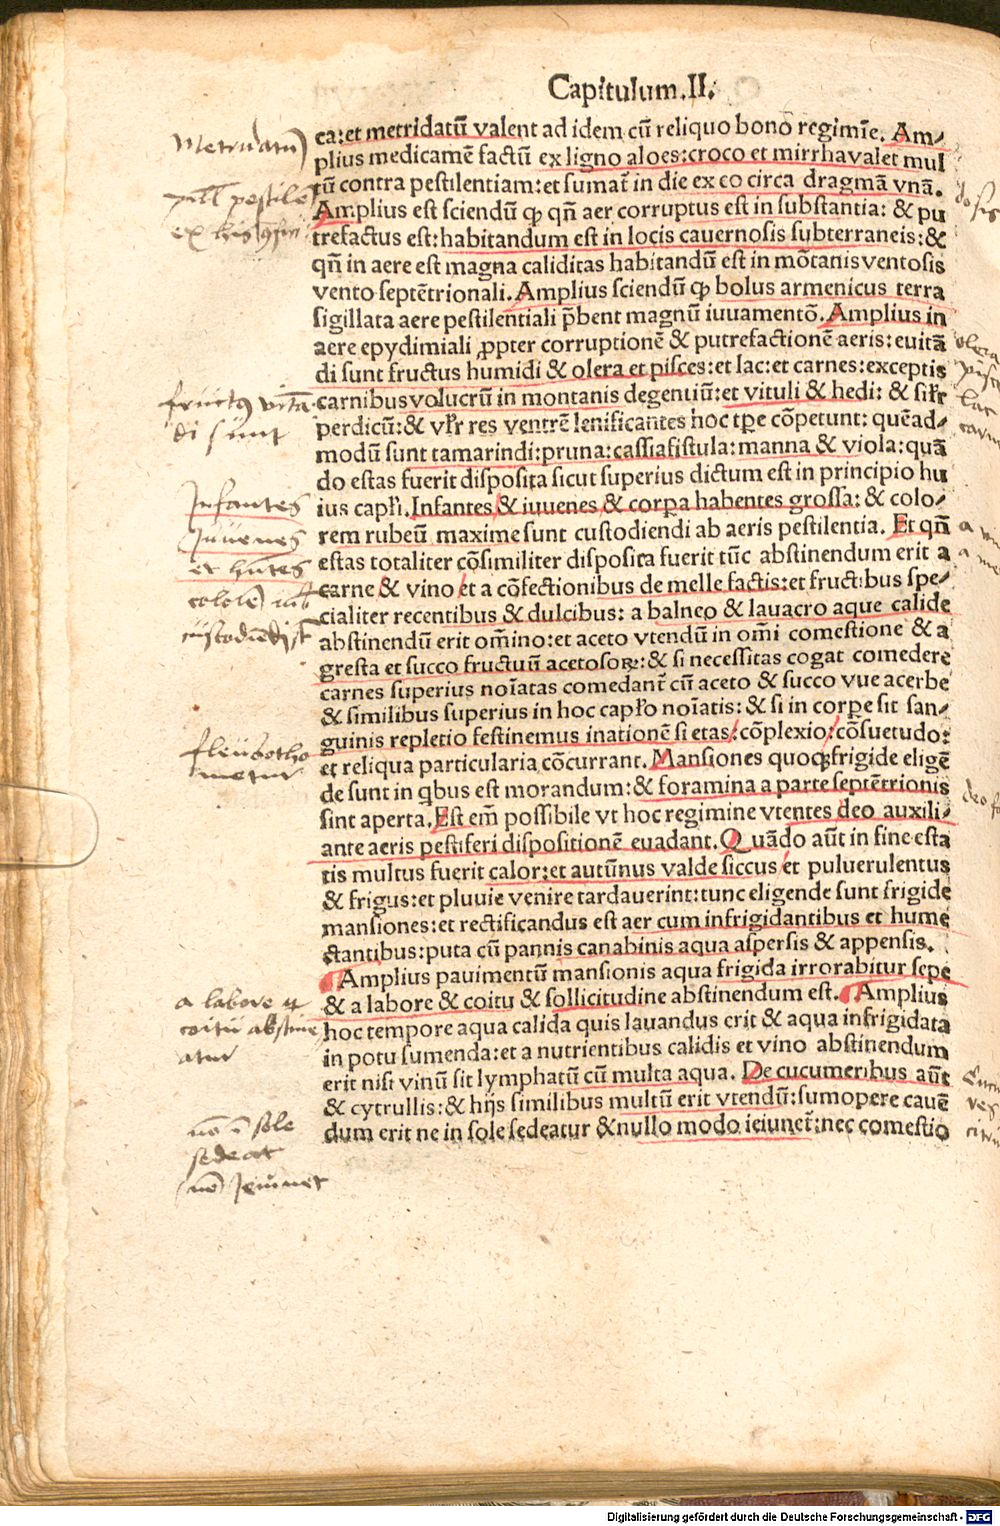 Capitulum.II.
ca:et metridatū valent ad idem cū reliquo bono regimīe. Am-
plius medicamē factū ex ligno aloes:croco et mirrha valet mul
tū contra pestilentiam:et sumat̄ in die ex eo circa dragmā vnā.
Amplius est sciendū ꝙ qn̄ aer corruptus est in substantia: & pu
trefactus est:habitandum est in locis cauernosis subterraneis:&
qn̄ in aere est magna caliditas habitandū est in mōtanis ventosis
vento septētrionali. Amplius sciendū ꝙ bolus armenicus terra
sigillata aere pestilentiali p̄bent magnū iuuamentō. Amplius in
aere epydimiali ꝓpter corruptionē & putrefactionē aeris: euitā
di sunt fructus humidi & olera et pisces:et lac:et carnes:exceptis
carnibus volucrū in montanis degentiū:et vituli & hedi: & sił̄r
perdicū:& vł̄r res ventrē lenificantes hoc tp̄e cōpetunt: quēad-
modū sunt tamarindi:pruna:cassiafistula:manna & viola:quā
do estas fuerit disposita sicut superius dictum est in principio hu
ius cap̄ł̄i. Infantes & iuuenes & corp̄a habentes grossa: & colo-
rem rubeū maxime sunt custodiendi ab aeris pestilentia. Et qn̄
estas totaliter cōsimiliter disposita fuerit tūc abstinendum erit a
carne & vino et a cōfectionibus de melle factis:et fructibus spe-
cialiter recentibus & dulcibus: a balneo & lauacro aque calide
abstinendū erit om̄ino:et aceto vtendū in om̄i comestione & a
gresta et succo fructuū acetosoꝝ:& si necessitas cogat comedere
carnes superius noīatas comedant̄ cū aceto & succo vue acerbe
& similibus superius in hoc cap̄ł̄o noīatis: & si in corp̄e sit san-
guinis repletio festinemus inationē si etas:cōplexio:cōsuetudo:
et reliqua particularia cōcurrant. Mansiones quoqꝫ frigide eligē
de sunt in qbus est morandum:& foramina a parte septētrionis
sint aperta. Est em̄ possibile vt hoc regimine vtentes deo auxili-
ante aeris pestiferi dispositionē euadant. Quādo aūt in fine esta
tis multus fuerit calor:et autūnus valde siccus et puluerulentus
& frigus:et pluuie venire tardauerint:tunc eligende sunt frigide
mansiones:et rectificandus est aer cum infrigidantibus et hume
ctantibus:puta cū pannis canabinis aqua aspersis & appensis.
Amplius pauimentū mansionis aqua frigida irrorabitur sepe
& a labore & coitu & sollicitudine abstinendum est. Amplius
hoc tempore aqua calida quis lauandus erit & aqua infrigidata
in potu sumenda:et a nutrientibus calidis et vino abstinendum
erit nisi vinū sit lymphatū cū multa aqua. De cucumeribus aūt
& cytrullis:& hijs similibus multū erit vtendū:sumopere cauē
dum erit ne in sole sedeatur & nullo modo ieiunet̄:nec comestio
Metridatū
pill pestilē
ex his
fructꝰ vitā
di sunt
Infantes
Juuenes
et hn̄tes
colorē
custodiēdi st̄
fleubotho
metur
a labore et
coitu abstine
atur
nō ī sole
sedeat
nō Jeiunet
dosis
olera
lac
deo
Digitalisierung gefördert durch die Deutsche Forschungsgemeinschaft - DFG